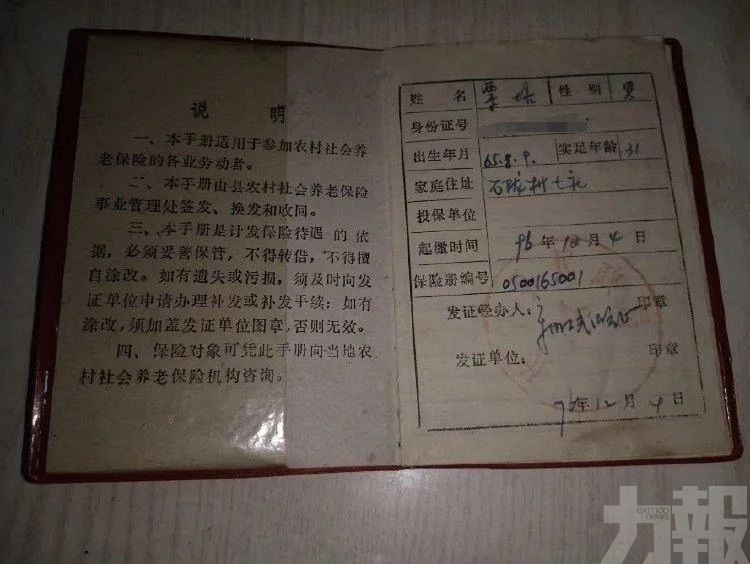 说 明
一、本手册适用于参加农村社会养
老保险的各业劳动者。
二、本手册由县农村社会养老保险
事业管理处签发、换发和收回。
三、本手册是计发保险待遇的依
据，必须妥善保管，不得转借，不得擅
自涂改。如有遗失或污损，须及时向发
证单位申请办理补发或补发手续；如有
涂改，须加盖发证单位图章，否则无效。
四、保险对象可凭此手册向当地农
村社会养老保险机构咨询。
姓 名 性 别 男
身份证号
出生年月 65.8.9. 实足年龄 31
家庭住址 石陇村七社
投保单位
起缴时间 96年12月4日
保险册编号 0500165001
发证经办人： 印章
发证单位： 印章
96年12月4日
exmoo
news
力報